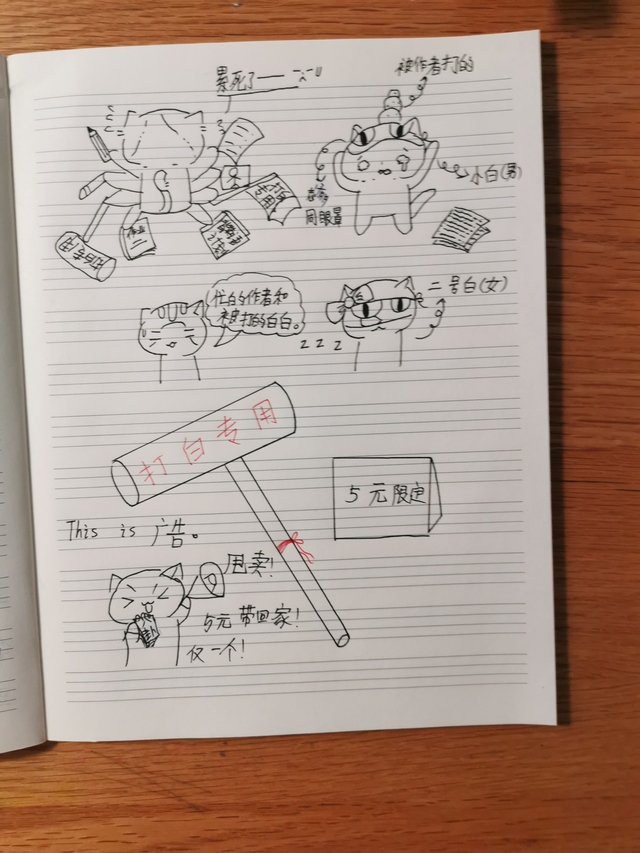 累死了——
被作者打的
小白(男)
同眼罩
打白专用
打白专用
忙的作者和
被打的白白。
二号白(女)
z z z
打白专用
5元限定
This is 广告。
甩卖!
5元带回家!
仅一个!